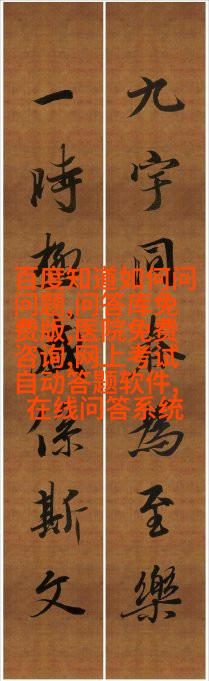 九宇同為至樂
一時極係斯文
百度知道如何问
问题,问答库免
费版,医院免费
咨询,网上考试
自动答题软件,
在线问答系统